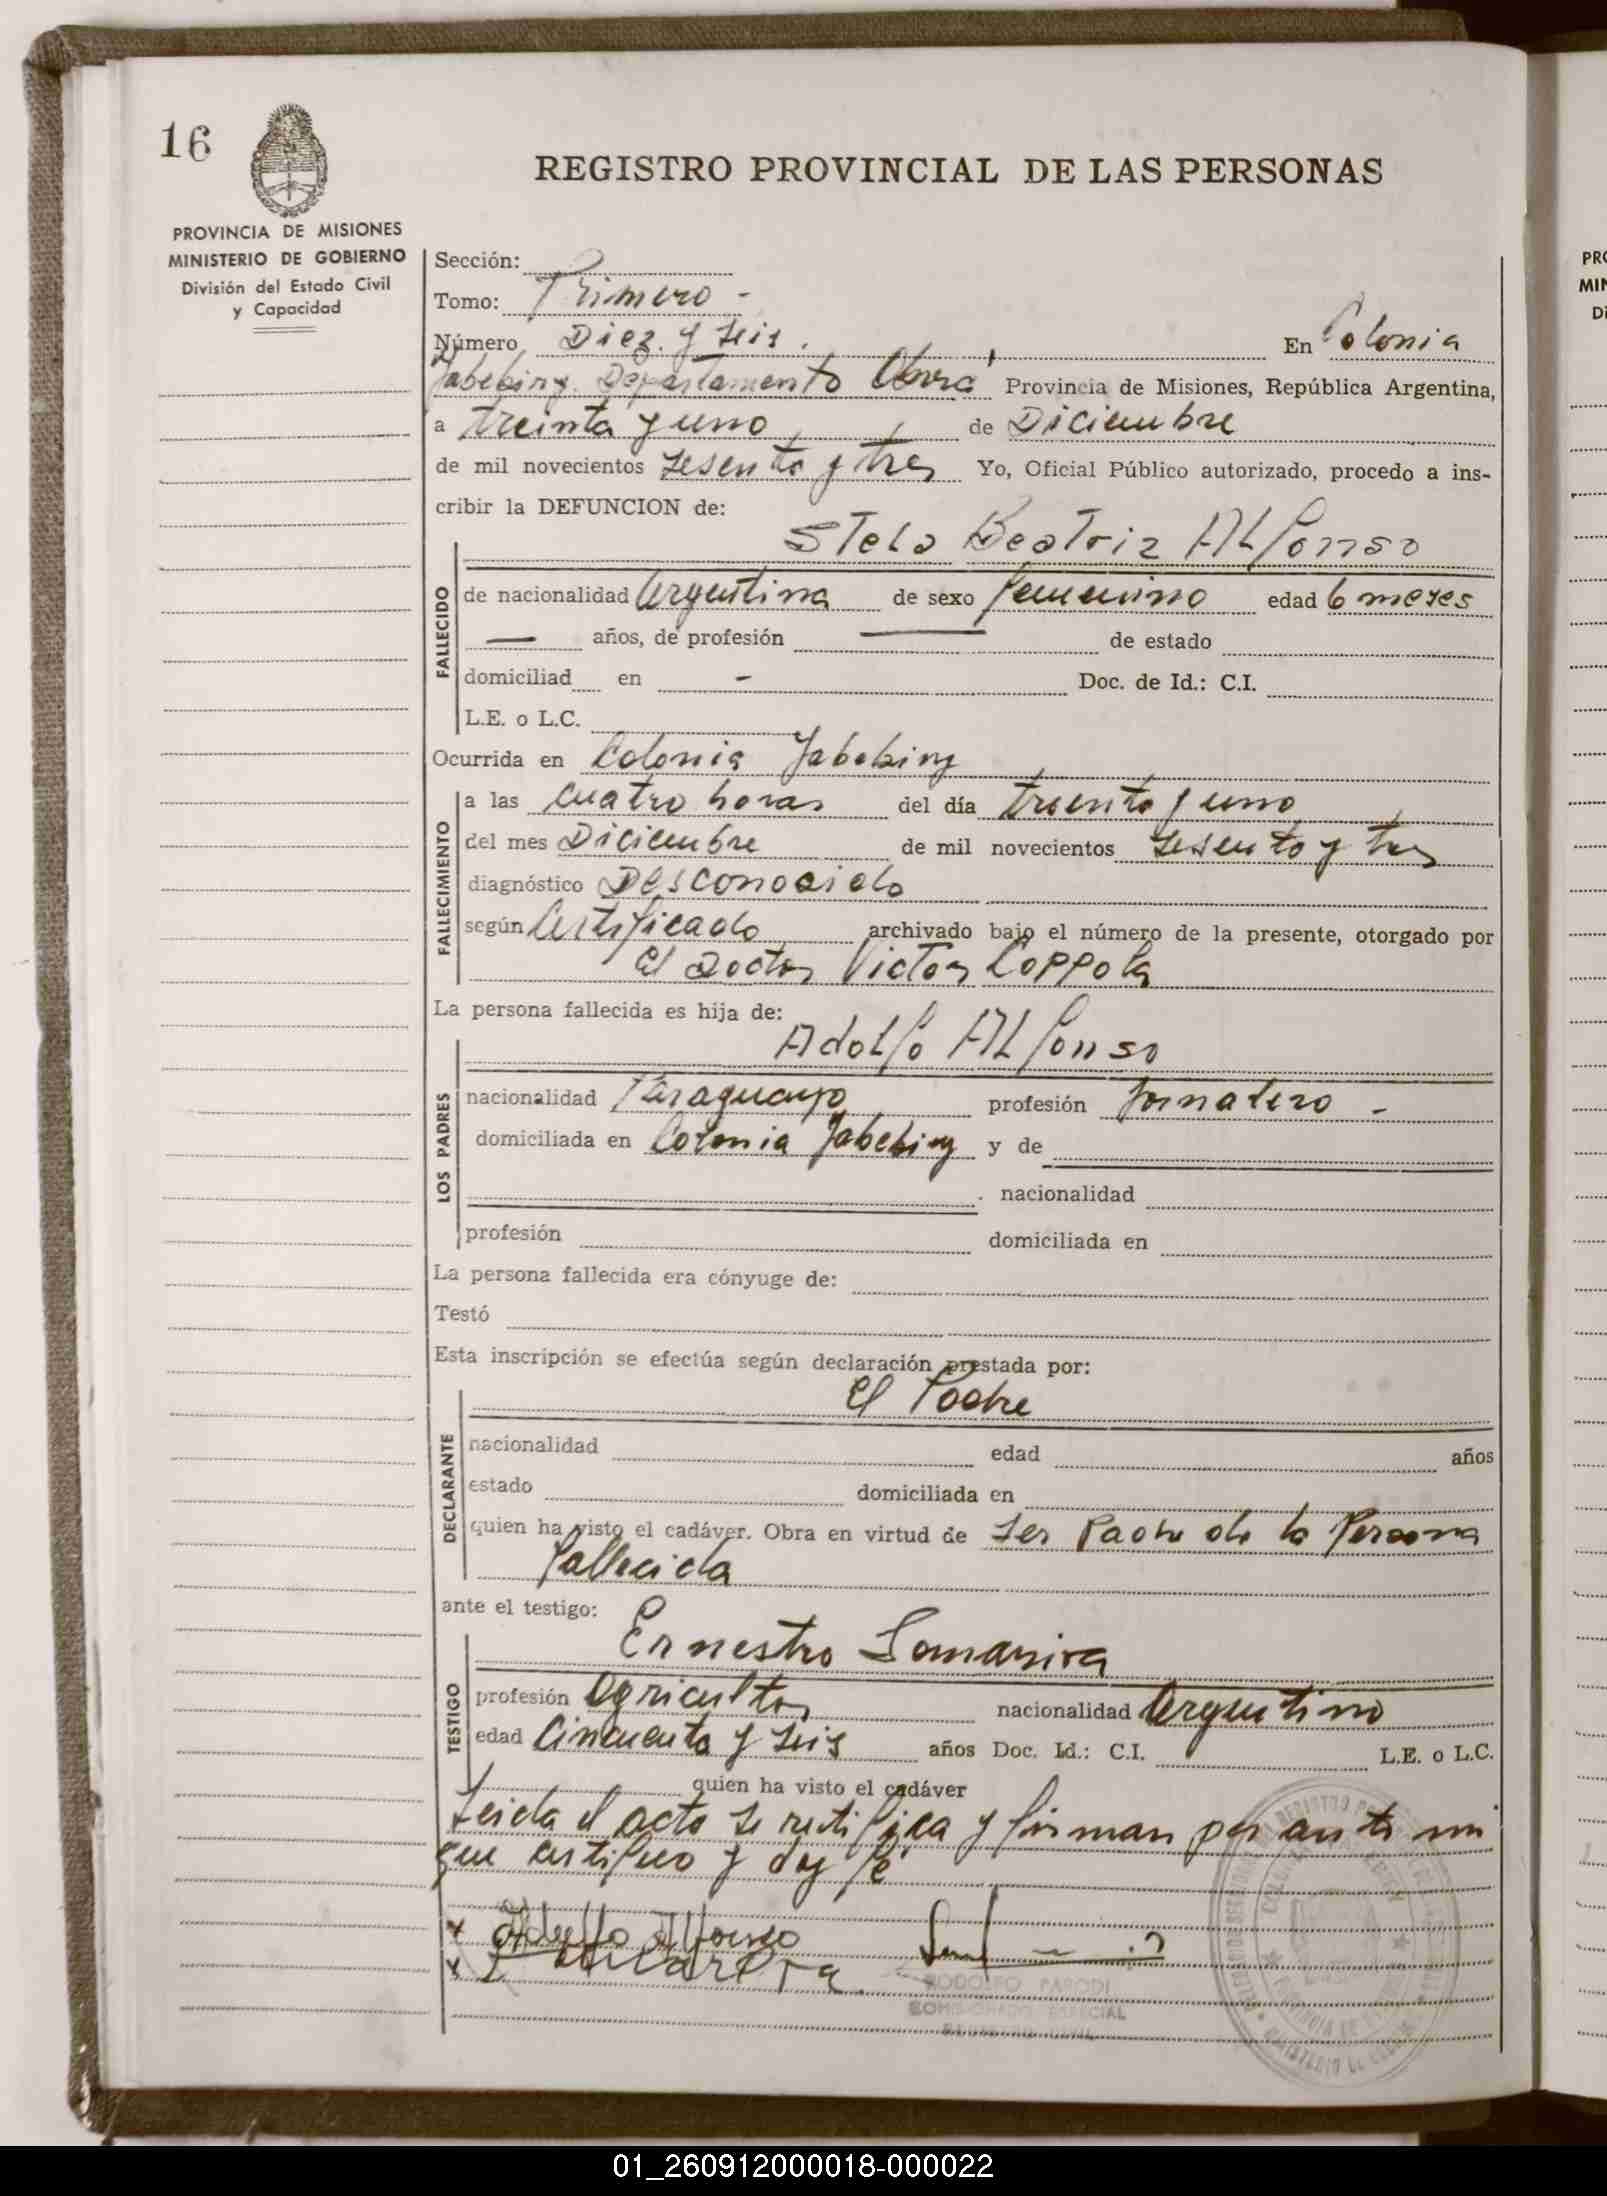 16
REGISTRO PROVINCIAL DE LAS PERSONAS
PROVINCIA DE MISIONES
MINISTERIO DE GOBIERNO
División del Estado Civil
y Capacidad
Sección:
Tomo: Primero -
Número Diez y seis. En Colonia
Jabebiry Departamento Oberá Provincia de Misiones, República Argentina,
a treinta y uno de Diciembre
de mil novecientos sesenta y tres Yo, Oficial Público autorizado, procedo a ins-
cribir la DEFUNCION de:
Stela Beatriz ALfonso
FALLECIDO
de nacionalidad Argentina de sexo femenino edad 6 meses
— años, de profesión — de estado
domiciliad en - Doc. de Id.: C.I.
L.E. o L.C.
Ocurrida en Colonia Jabebiry
FALLECIMIENTO
a las cuatro horas del día treinta y uno
del mes Diciembre de mil novecientos sesenta y tres
diagnóstico Desconocido
según Certificado archivado bajo el número de la presente, otorgado por
el Doctor Victor Coppola
La persona fallecida es hija de:
AdoLfo ALfonso
LOS PADRES
nacionalidad Paraguayo profesión Jornalero -
domiciliada en Colonia Jabebiry y de
nacionalidad
profesión domiciliada en
La persona fallecida era cónyuge de:
Testó
Esta inscripción se efectúa según declaración prestada por:
el Padre
DECLARANTE
nacionalidad edad años
estado domiciliada en
quien ha visto el cadáver. Obra en virtud de ser Padre de la Persona
fallecida
ante el testigo:
Ernestro
TESTIGO
profesión agricultor nacionalidad Argentino
edad Cincuenta y seis años Doc. Id.: C.I. L.E. o L.C.
quien ha visto el cadáver
Leida el acta se ratifica y firman por ante mi
que certifico y doy fé
x Adolfo Alfonso
x
RODOLFO PARODI
COMISIONADO ESPECIAL
REGISTRO CIVIL
PRO
MIN
Di
01_260912000018-000022